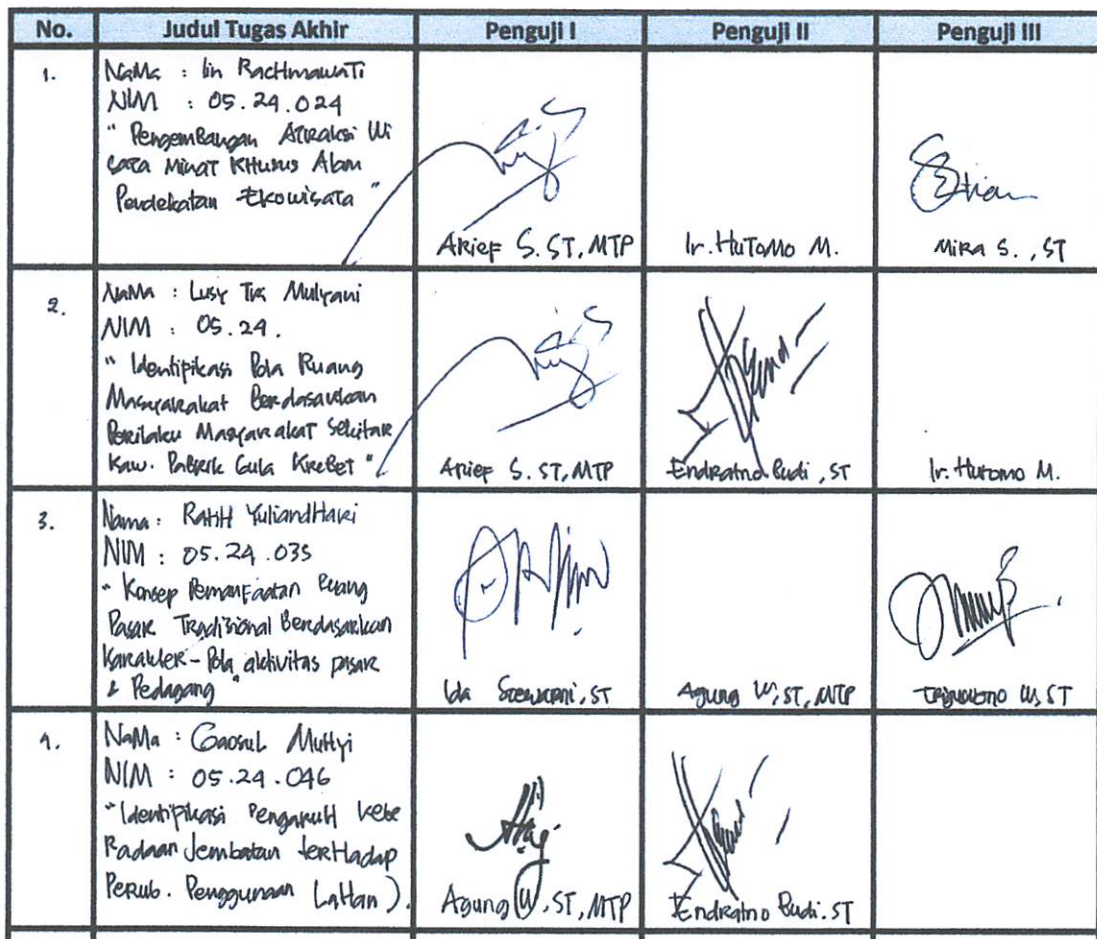 No. Judul Tugas Akhir Penguji I Penguji II Penguji III
1.
NaMa : Iin RacHmawaTi
NIM : 05.24.024
" PengemBangan Atraksi Wi
sata MinaT KHusus Alam
Pendekatan Ekowisata "
Arief S. ST, MTP
Ir. HuToMo M.
Mira S., ST
2.
NaMa : Lusy Mulyani
NIM : 05.24.
" Identifikasi Pola Ruang
Masyarakat Berdasarkan
Perilaku Masyarakat Sekitar
Kaw. Pabrik Gula KreBet "
Arief S. ST, MTP
Endratno Budi, ST
Ir. Hutomo M.
3.
Nama : RatiH YuliandHari
NIM : 05.24.035
" Konsep Pemanfaatan Ruang
Pasar Tradisional Berdasarkan
Karakter - Pola aktivitas pasar
& Pedagang "
Ida ST
Agung W, ST, MTP
W, ST
4.
NaMa : Gaosul MutHyi
NIM : 05.24.046
" Identifikasi PengaruH kebe
Radaan Jembatan terHadap
Perub. Penggunaan LaHan ).
Agung W, ST, MTP
Endratno Budi. ST